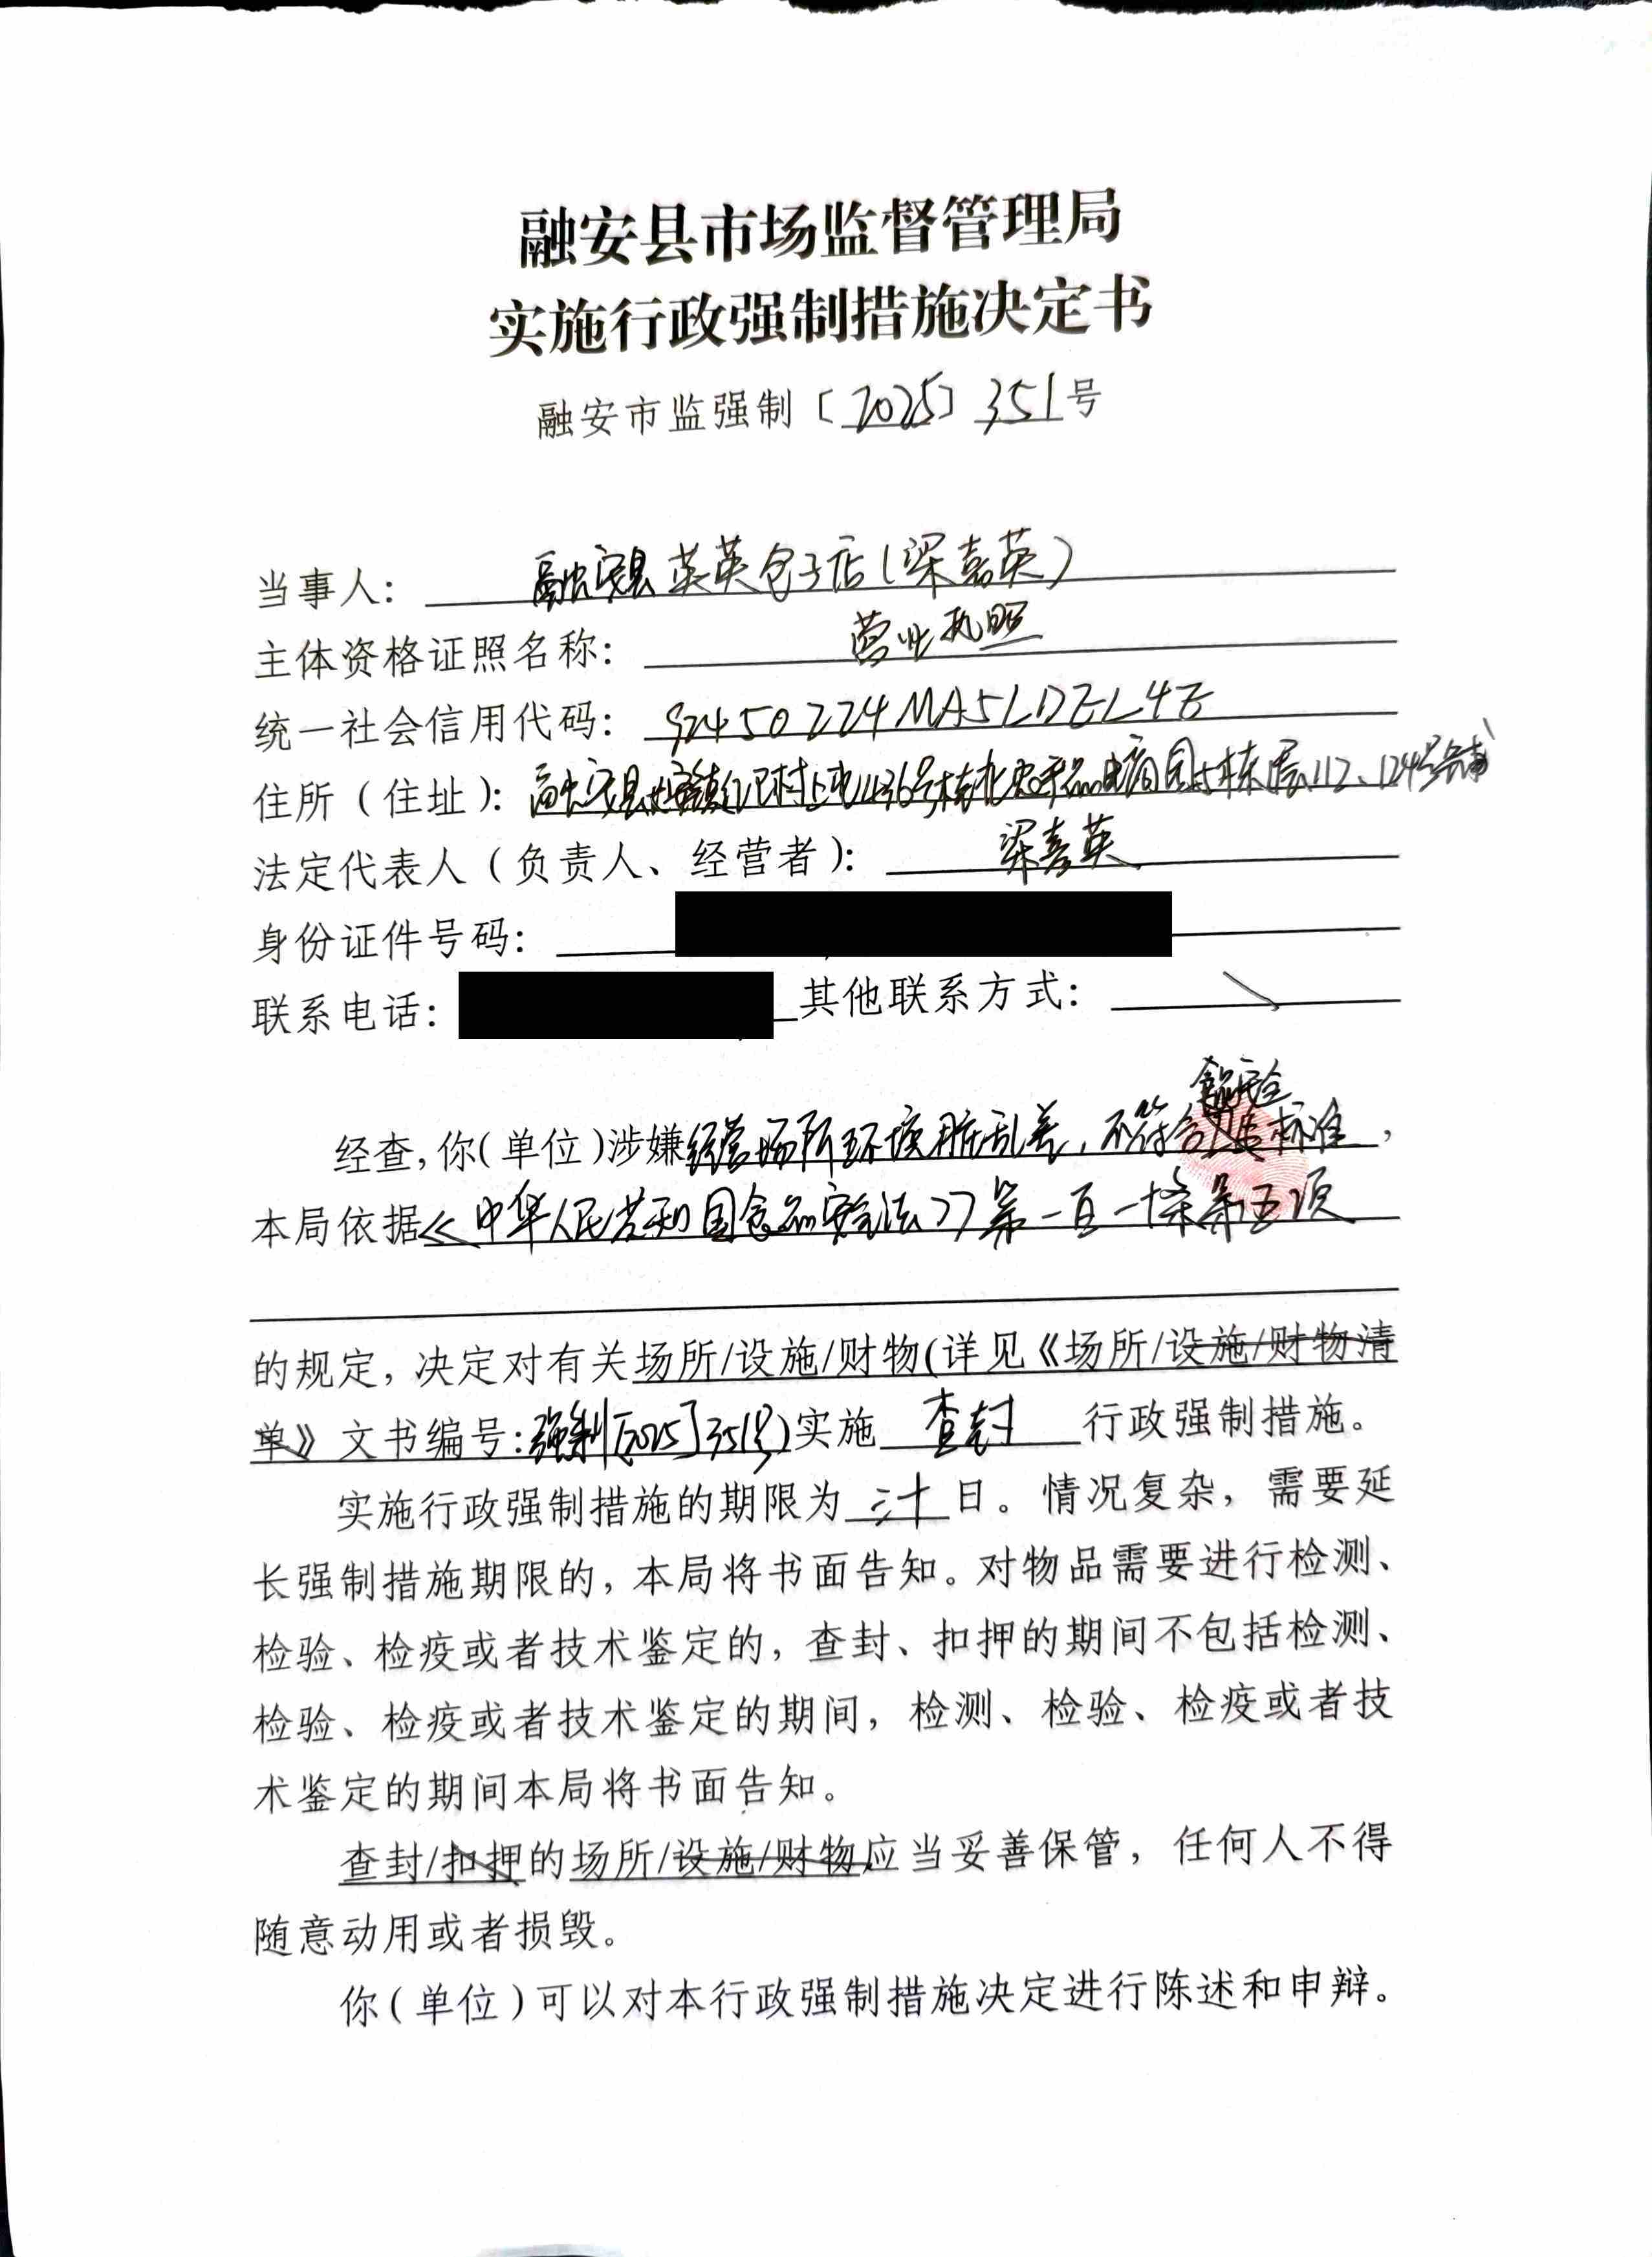 融安县市场监督管理局
实施行政强制措施决定书
融安市监强制〔2025〕351号
当事人：融安县英英包子店(梁嘉英)
主体资格证照名称：营业执照
统一社会信用代码：92450224MA5LDEL4E
住所（住址）：融安县长安镇红卫村上 436号 园5栋1层112、124号
法定代表人（负责人、经营者）：梁嘉英
身份证件号码：
联系电话： 其他联系方式：
食品安全
经查,你(单位)涉嫌经营场所环境脏乱差，不符合标准，
本局依据《中华人民共和国食品安全法》第一百一十条第五项
的规定，决定对有关场所/设施/财物(详见《场所/设施/财物清
单》文书编号:强制[2025]351号)实施查封行政强制措施。
实施行政强制措施的期限为三十日。情况复杂，需要延
长强制措施期限的，本局将书面告知。对物品需要进行检测、
检验、检疫或者技术鉴定的，查封、扣押的期间不包括检测、
检验、检疫或者技术鉴定的期间，检测、检验、检疫或者技
术鉴定的期间本局将书面告知。
查封/扣押的场所/设施/财物应当妥善保管，任何人不得
随意动用或者损毁。
你(单位)可以对本行政强制措施决定进行陈述和申辩。